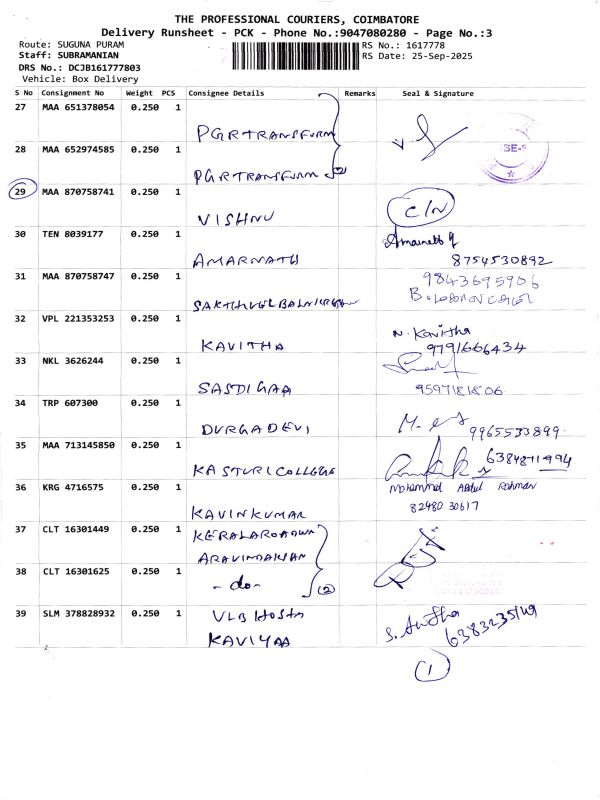 THE PROFESSIONAL COURIERS, COIMBATORE
Delivery Runsheet - PCK - Phone No.:9047080280 - Page No.:3
Route: SUGUNA PURAM
RS No.: 1617778
Staff: SUBRAMANIAN
RS Date: 25-Sep-2025
DRS No.: DCJB161777803
Vehicle: Box Delivery
S No Consignment No Weight PCS Consignee Details Remarks Seal & Signature
27 MAA 651378054 0.250 1
PGRTRANSFORM
28 MAA 652974585 0.250 1
PGRTRANSFORM (2)
29 MAA 870758741 0.250 1
VISHNU C/N
30 TEN 8039177 0.250 1
AMARNATH 8754530892
31 MAA 870758747 0.250 1
9843695906
32 VPL 221353253 0.250 1
KAVITHA N. Kavitha
9791666434
33 NKL 3626244 0.250 1
9597181806
34 TRP 607300 0.250 1
DURGADEVI 9965533899
35 MAA 713145850 0.250 1
KASTURI COLLEGE
36 KRG 4716575 0.250 1
Mohammed Abdul Rahman
KAVINKUMAR 82480 30617
37 CLT 16301449 0.250 1
38 CLT 16301625 0.250 1
- do - (2)
39 SLM 378828932 0.250 1
VLB
KAVIYAA
(1)